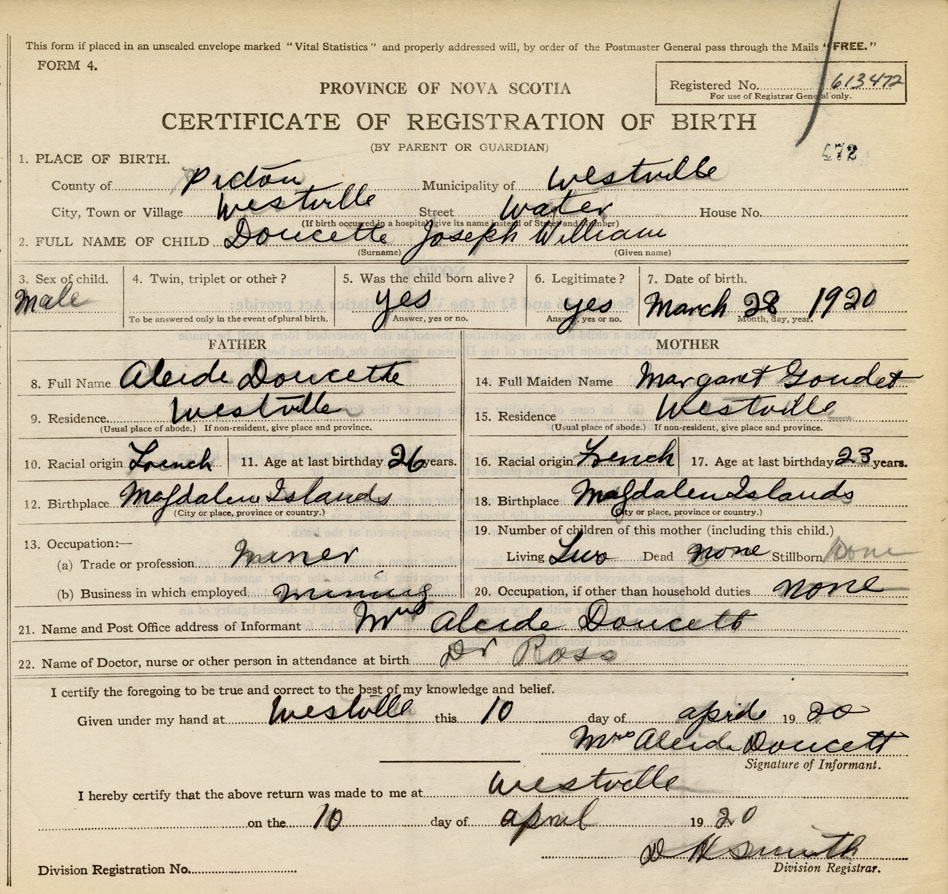 This form if placed in an unsealed envelope marked "Vital Statistics" and properly addressed will, by order of the Postmaster General pass through the Mails "FREE."
FORM 4.
Registered No. 613472
For use of Registrar General only.
PROVINCE OF NOVA SCOTIA
CERTIFICATE OF REGISTRATION OF BIRTH
(BY PARENT OR GUARDIAN)
472
1. PLACE OF BIRTH.
County of Pictou Municipality of Westville
City, Town or Village Westville Street Water House No.
(If birth occurred in a hospital give its name instead of Street and number)
2. FULL NAME OF CHILD Doucette Joseph William
(Surname) (Given name)
3. Sex of child. 4. Twin, triplet or other? 5. Was the child born alive? 6. Legitimate? 7. Date of birth.
Male yes yes March 28 1920
To be answered only in the event of plural birth. Answer, yes or no. Answer, yes or no. Month, day, year.
FATHER MOTHER
8. Full Name Alcide Doucette 14. Full Maiden Name Margaret Goudet
9. Residence Westville 15. Residence Westville
(Usual place of abode.) If non-resident, give place and province. (Usual place of abode.) If non-resident, give place and province.
10. Racial origin French 11. Age at last birthday 26 years. 16. Racial origin French 17. Age at last birthday 23 years.
12. Birthplace Magdalen Islands 18. Birthplace Magdalen Islands
(City or place, province or country.) (City or place, province or country.)
13. Occupation:— 19. Number of children of this mother (including this child.)
(a) Trade or profession Miner Living Two Dead none Stillborn None
(b) Business in which employed mining 20. Occupation, if other than household duties none
21. Name and Post Office address of Informant Mrs Alcide Doucett
22. Name of Doctor, nurse or other person in attendance at birth Dr Ross
I certify the foregoing to be true and correct to the best of my knowledge and belief.
Given under my hand at Westville this 10 day of april 19 20
Mrs Alcide Doucett
Signature of Informant.
I hereby certify that the above return was made to me at Westville
on the 10 day of april 19 20
D H Smith
Division Registration No. Division Registrar.